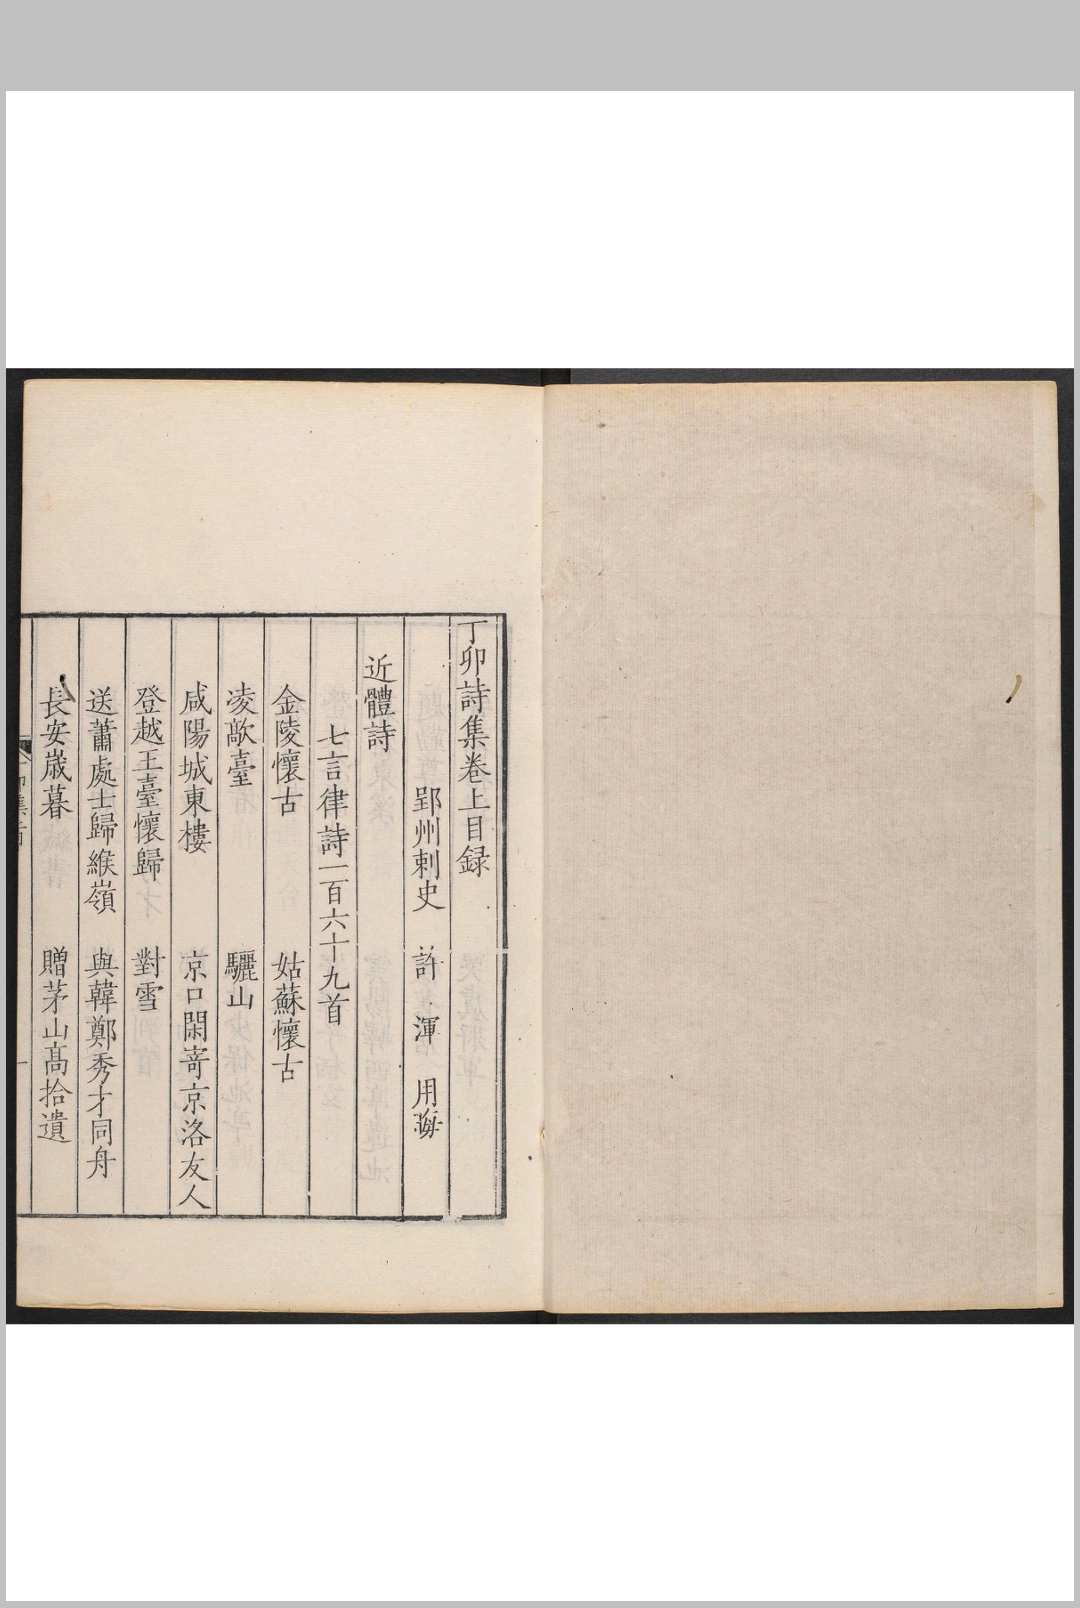 丁卯詩集卷上目録
郢州刺史 許 渾 用晦
近體詩
七言律詩一百六十九首
金陵懷古 姑蘇懷古
凌歊臺 驪山
咸陽城東樓 京口閑寄京洛友人
登越王臺懷歸 對雪
送蕭處士歸緱嶺 與韓鄭秀才同舟
長安歲暮 贈茅山高拾遺